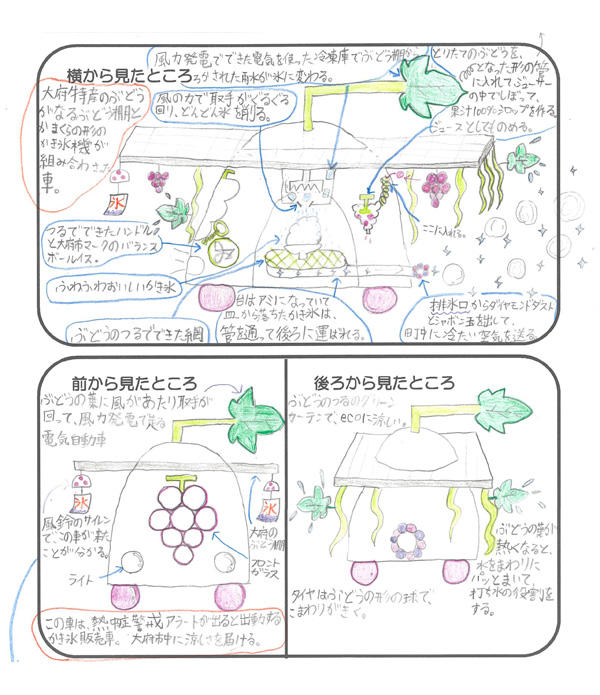 横から見たところ
風力発電でできた電気を使った冷凍庫でぶどう棚から
ろかされた雨水が氷に変わる。
とりたてのぶどうを、
くるくるとなった形の管
に入れてジューサー
の中でしぼって、
果汁100%シロップを作る。
ジュースとしてものめる。
大府特産のぶどう
がなるぶどう棚と
かまくらの形の
かき氷機が
組み合わさった
車。
風の力で取手がぐるぐる
回り、どんどん氷を削る。
氷
つるでできたハンドル
と大府市マークのバランス
ボールイス。
ここに入れる。
ふわふわおいしいかき氷
ぶどうのつるでできた網
皿はアミになっていて
皿から落ちたかき氷は、
管を通って後ろに運ばれる。
排氷口からダイヤモンドダスト
とシャボン玉を出して、
町中に冷たい空気を送る。
前から見たところ
ぶどうの葉に風があたり取手が
回って、風力発電で走る
電気自動車
氷
氷
風鈴のサイレン
でこの車が来た
ことが分かる。
大府の
ぶどう棚
フロント
ガラス
ライト
この車は、熱中症警戒アラートが出ると出動する
かき氷販売車。大府市中に涼しさを届ける。
後ろから見たところ
ぶどうのつるのグリーン
カーテンで、ecoに涼しい。
ぶどうの葉が
熱くなると、
水をまわりに
パッとまいて、
打ち水の役割を
する。
タイヤはぶどうの形の球で、
こまわりがきく。